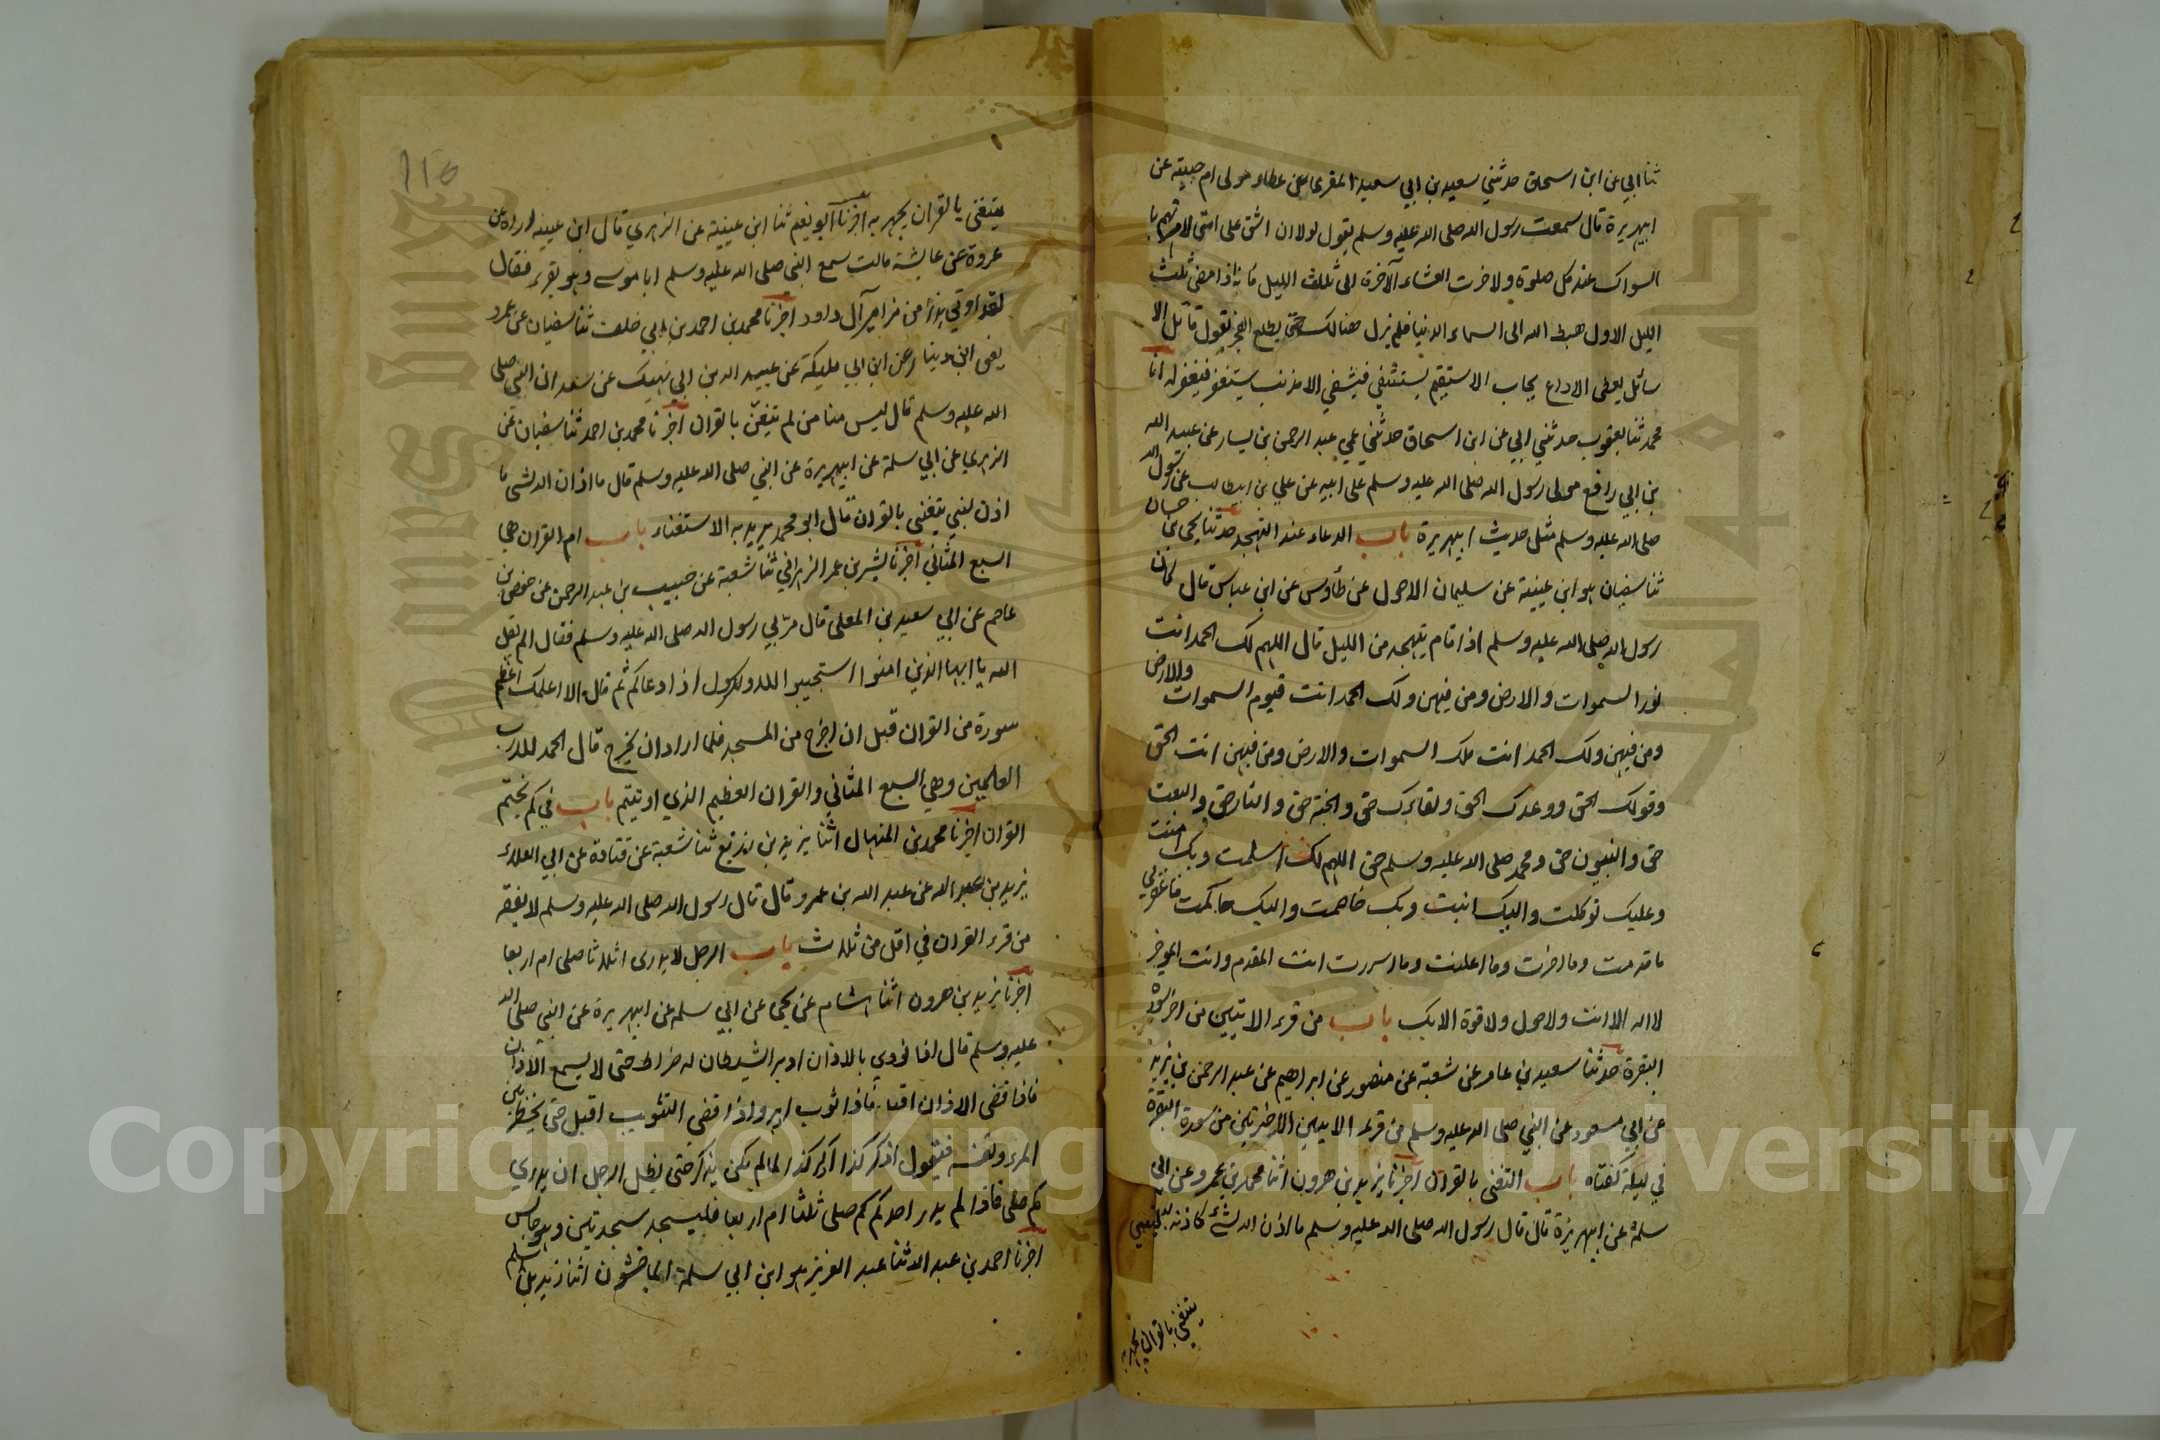 ثنا ابي عن ابن اسحاق حدثني سعيد بن ابي سعيد المقري عن عطاء مولى ام صبية عن
ابيهريرة قال سمعت رسول الله صلى الله عليه وسلم يقول لولا ان اشق على امتي لامرتهم با
السواك عند كل صلوة ولاخرت العشاء الآخرة الى ثلث الليل فانه اذا مضى ثلث
الليل الاول هبط الله الى السماء الدنيا فلم يزل هنالك حتى يطلع الفجر يقول قائل الا
سائل يعطى الا داع يجاب الا سقيم يستشفي فيشفي الا مذنب يستغفر فيغفر له انا
محمد ثنا يعقوب حدثني ابي عن ابن اسحاق حدثني عمي عبد الرحمن بن يسار عن عبيد الله
بن ابي رافع مولى رسول الله صلى الله عليه وسلم على ابيه عن علي بن ابيطالب عن رسول الله
صلى الله عليه وسلم مثل حديث ابيهريرة باب الدعاء عند التهجد حدثنا يحيى بن حسان
ثنا سفيان هو ابن عيينة عن سليمان الاحول عن طاوس عن ابن عباس قال كان
رسول الله صلى الله عليه وسلم اذا قام يتهجد من الليل قال اللهم لك الحمد انت
نور السموات والارض ومن فيهن ولك الحمد انت قيوم السموات والارض
ومن فيهن ولك الحمد انت ملك السموات والارض ومن فيهن انت الحق
وقولك الحق ووعدك الحق ولقاءك حق والجنة حق والنار حق والبعث
حق والنبيون حق ومحمد صلى الله عليه وسلم حق اللهم لك اسلمت وبك امنت
وعليك توكلت واليك انبت وبك خاصمت واليك حاكمت فاغفر لي
ما قدمت وما اخرت وما اعلنت وما اسررت انت المقدم وانت الموخر
لا اله الا انت ولا حول ولا قوة الا بك باب من قرء الايتين من اخر سورة
البقرة حدثنا سعيد بن عامر عن شعبة عن منصور عن ابراهيم عن عبد الرحمن بن يزيد
عن ابي مسعود عن النبي صلى الله عليه وسلم من قرء الايتين الاخرتين من سورة البقرة
في ليلة كفتاه باب التغني بالقران اخبرنا يزيد بن هرون انا محمد بن عمرو عن ابي
سلمة عن ابيهريرة قال قال رسول الله صلى الله عليه وسلم ما اذن الله لشئ كاذنه لنبي
يتغني بالقران يجهر به
115
يتغنى بالقران يجهر به اخبرنا ابو نعيم ثنا ابن عيينة عن الزهري قال ابن عيينه اراه عن
عروة عن عايشة قالت سمع النبي صلى الله عليه وسلم ابا موسى وهو يقرء فقال
لقد اوتي هذا من مزامير آل داود اخبرنا محمد بن احمد بن ابي خلف ثنا سفيان عن عمرو
يعنى ابن دينار عن ابن ابي مليكة عن عبيد الله بن ابي نهيك عن سعد ان النبي صلى
الله عليه وسلم قال ليس منا من لم يتغن بالقران اخبرنا محمد بن احمد ثنا سفيان عن
الزهري عن ابي سلمة عن ابيهريرة عن النبي صلى الله عليه وسلم قال ما اذن الله لشى ما
اذن لنبي يتغنى بالقران قال ابو محمد يريد به الاستغناء باب ام القران هي
السبع المثاني اخبرنا بشر بن عمر الزهراني ثنا شعبة عن خبيب بن عبد الرحمن عن حفص بن
عاصم عن ابي سعيد بن المعلى قال مر بي رسول الله صلى الله عليه وسلم فقال الم يقل
الله يا ايها الذين امنوا استجيبوا لله وللرسول اذا دعاكم ثم قال الا اعلمك اعظم
سورة من القران قبل ان اخرج من المسجد فلما اراد ان يخرج قال الحمد لله رب
العلمين وهي السبع المثاني والقران العظيم الذي اوتيتم باب في كم يختم
القران اخبرنا محمد بن المنهال انا يزيد بن زريع ثنا شعبة عن قتادة عن ابي العلاء
يزيد بن عبد الله عن عبد الله بن عمرو قال قال رسول الله صلى الله عليه وسلم لا يفقه
من قرء القران في اقل من ثلاث باب الرجل لا يدرى اثلاثا صلى ام اربعا
اخبرنا يزيد بن هرون انا هشام عن يحيى عن ابي سلمه عن ابيهريرة عن النبي صلى الله
عليه وسلم قال اذا نودي بالاذان ادبر الشيطان له ضراط حتى لا يسمع الاذان
فاذا قضى الاذان اقبل فاذا ثوب ادبر واذا قضى التثويب اقبل حتى يخطر بين
المرء ونفسه فيقول اذكر كذا اذكر كذا لما لم يكن يذكر حتى يظل الرجل ان يدري
كم صلى فاذا لم يدر احدكم كم صلى ثلثا ام اربعا فليسجد سجدتين وهو جالس
اخبرنا احمد بن عبد الله ثنا عبد العزيز هو ابن ابي سلمة الماجشون انا زيد بن اسلم
Copyright © King Saud University